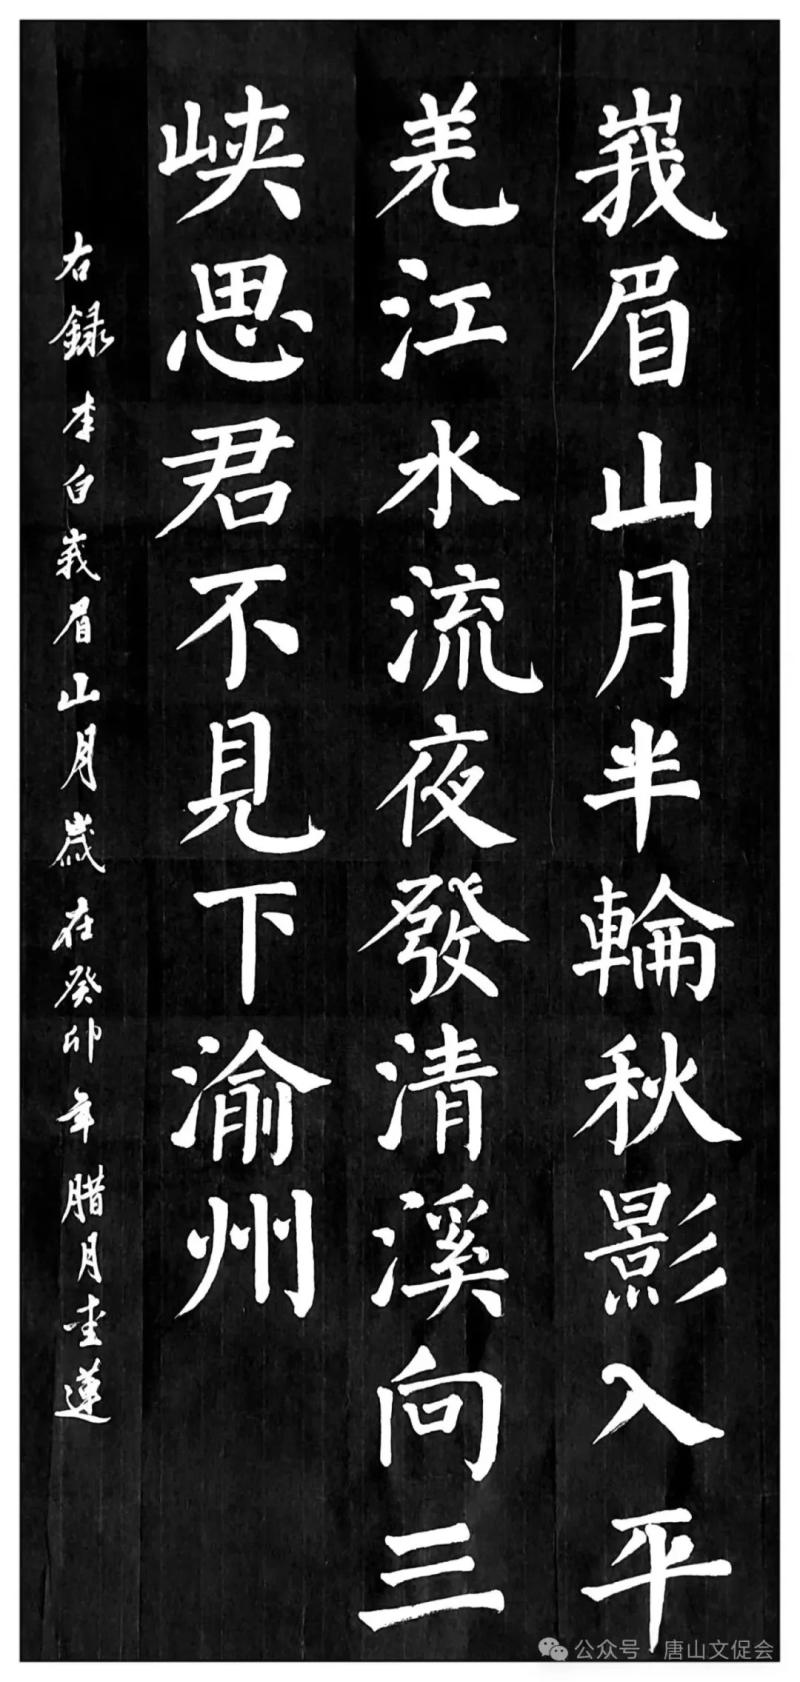 峩眉山月半輪秋影入平
羌江水流夜發清溪向三
峡思君不見下渝州
右録李白峩眉山月歲在癸卯年腊月奎蓮
公众号·唐山文促会